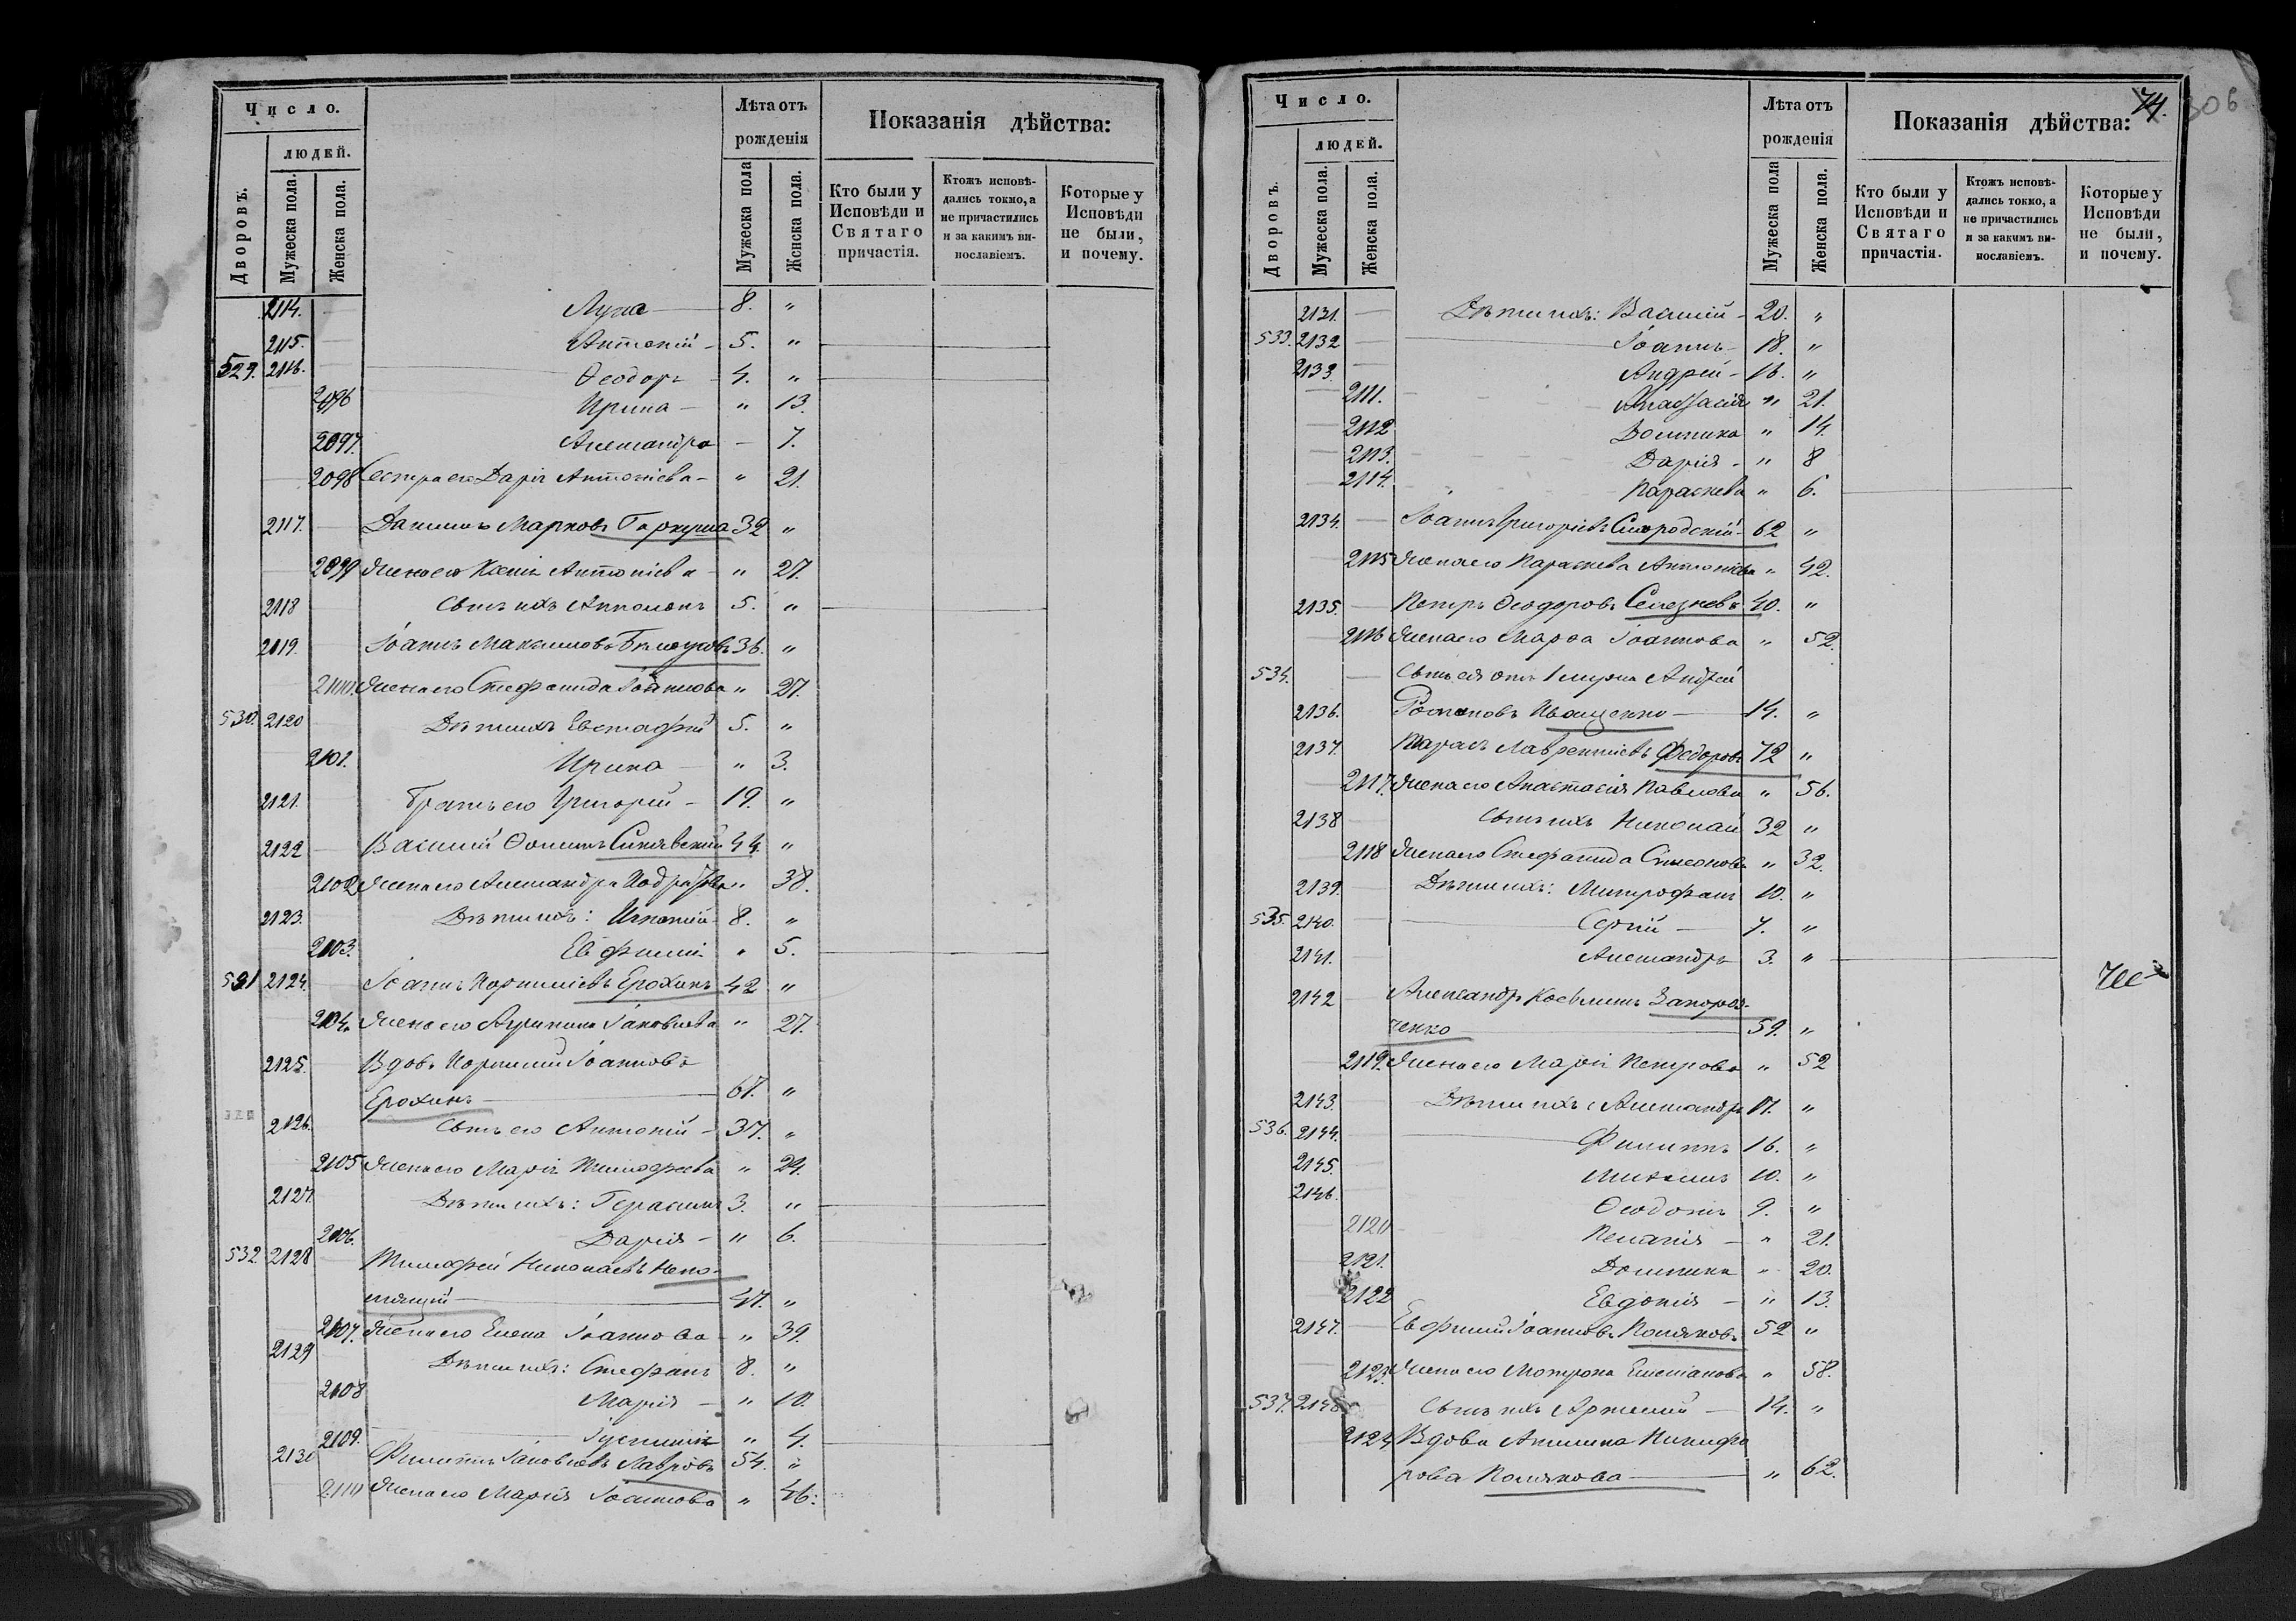 Число.
людей.
Дворовъ.
Мужеска пола.
Женска пола.
Лѣта отъ
рожденія
Мужеска пола
Женска пола.
Показанія дѣйства:
Кто были у
Исповѣди и
Святаго
причастія.
Ктожъ исповѣ-
дались токмо, а
не причастились
и за какимъ ви-
нословіемъ.
Которые у
Исповѣди
не были,
и почему.
2114. Лука 8. "
2115. Антоній 5. "
529. 2116. Ѳеодоръ 4. "
2096 Ирина " 13.
2097. Александра - 7.
2098 Сестра его Дарія Антоніева " 21.
2117. Даніилъ Марковъ Гаркуша 32 "
2099 Жена его Ксенія Антоніева " 27.
2118 Сынъ ихъ 5. "
2119. Іоаннъ Максимовъ 36. "
2100. Жена его Стефанида Іоаннова " 27.
530. 2120 Дѣти ихъ Евстафій 5. "
2101. Ирина " 3.
2121. Братъ его Григорій 19. "
2122 Василій Ѳоминъ Синявскій 44. "
2102 Жена его Александра " 38.
2123. Дѣти ихъ: Игнатій 8. "
2103. Евфимія " 5.
531 2124. Іоаннъ Корнилієвъ Ерохинъ 42 "
2104. Жена его Агрипина Іаковлева " 27.
2125. Вдовъ Корнилій Іоанновъ
Ерохинъ 67. "
2126. Сынъ его Антоній 37. "
2105 Жена его Марія Тимофеева " 24.
2127. Дѣти ихъ: Герасимъ 3. "
2106. Дарія " 6.
532 2128 Тимофей Николаевъ Непо-
47. "
2107. Жена его Елена Іоаннова " 39.
2129 Дѣти ихъ: Стефанъ 8. "
2108 Марія " 10.
2109. " 4.
2130 Филиппъ Іаковлевъ Лавровъ 54. "
2110 Жена его Марія Іоаннова " 46.
74. 306
Число.
людей.
Дворовъ.
Мужеска пола.
Женска пола.
Лѣта отъ
рожденія
Мужеска пола
Женска пола.
Показанія дѣйства:
Кто были у
Исповѣди и
Святаго
причастія.
Ктожъ исповѣ-
дались токмо, а
не причастились
и за какимъ ви-
нославіемъ.
Которые у
Исповѣди
не были,
и почему.
2131. Дѣти ихъ: Василій 20. "
533. 2132 Іоаннъ 18. "
2133. Андрей 16. "
2111. Анастасія " 21.
2112. Домника " 14.
2113. Дарія " 8
2114. Параскева " 6.
2134. Іоаннъ Григоріевъ 62 "
2115 Жена его Параскева Антоніева " 42.
2135. Петръ Ѳеодоровъ Селезневъ 40. "
2116 Жена его Марѳа Іоаннова " 52.
534. Сынъ ея отъ 1 мужа Андрей
2136. Романовъ Иващенко 14. "
2137. Тарасъ Лаврентіевъ Федоровъ 72 "
2117. Жена его Анастасія Павлова " 56.
2138 Сынъ ихъ Николай 32 "
2118 Жена его Стефанида Симеонова " 32.
2139. Дѣти ихъ: Митрофанъ 10. "
535. 2140. Сергій 7. "
2141. Александръ 3. "
2142 Александръ Косьминъ Запорож-
ченко 59. "
2119. Жена его Марія Петрова " 52
2143. Дѣти ихъ: Александръ 17. "
536. 2144. Филиппъ 16. "
2145. Михаилъ 10. "
2146. Ѳеодотъ 9. "
2120 Пелагія " 21.
2121. Домника " 20.
2122 Евдокія " 13.
2147. Евфимій Іоанновъ Поляковъ 52 "
2123. Жена его Мотрона " 58.
537. 2148 Сынъ ихъ Артемій 14. "
2124 Вдова Акилина Никифо
рова Полякова " 62.